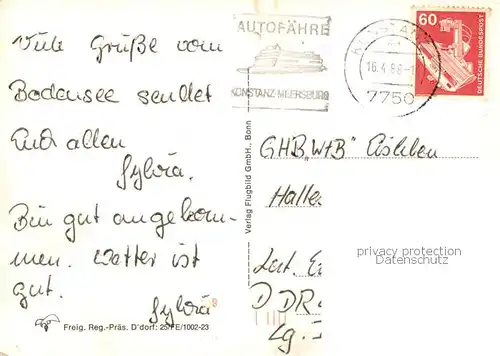 Viele Grüße vom
Bodensee sendet
Euch allen
Sylvia.
Bin gut angekom-
men. Wetter ist
gut.
Sylvia
8
Freig. Reg.-Präs. D'dorf: 25/FE/1002-23
Verlag Flugbild GmbH., Bonn
AUTOFÄHRE
KONSTANZ-MEERSBURG
KONSTANZ
16.4.8
7750
60
DEUTSCHE BUNDESPOST
GHB „WtB" Eisleben
Halle
privacy protection
Datenschutz
DDR